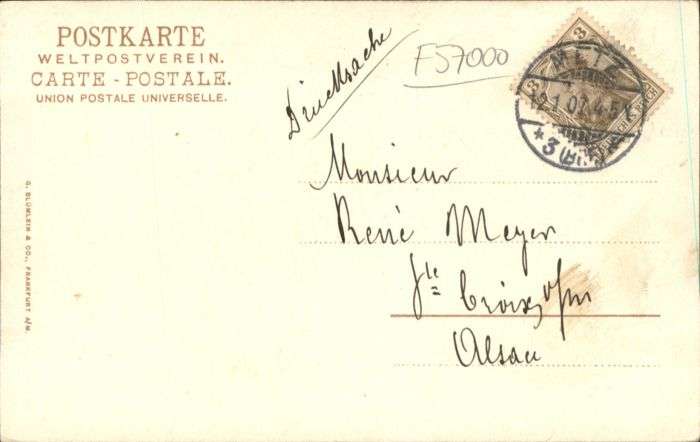 POSTKARTE
WELTPOSTVEREIN.
CARTE - POSTALE.
UNION POSTALE UNIVERSELLE.
Drucksache
F57000
3
METZ
12.1.07.4-5
* 3
Monsieur
René Meyer
Ste Croix a/m
Alsace
G. BLÜMLEIN & CO., FRANKFURT A/M.